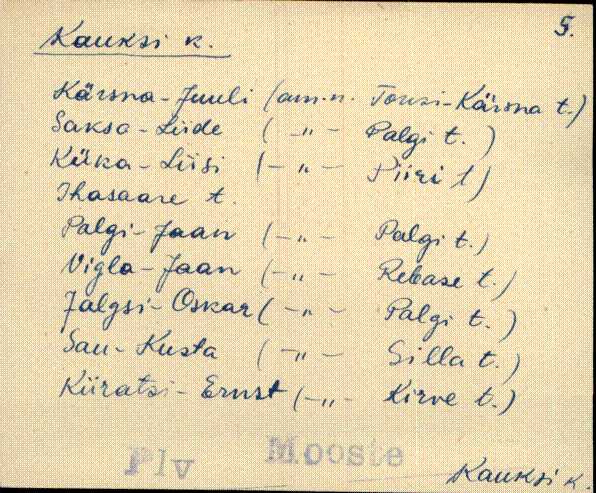 5.
Kauksi k.
Kärsna-Juuli (am.n. Tonsi-Kärsna t.)
Saksa-Liide ( -"- Palgi t. )
Küka-Liisi (-"- Piiri t)
Ihasaare t.
Palgi-Jaan (-"- Palgi t.)
Vigla-Jaan (-"- Rebase t.)
Jalgsi-Oskar (-"- Palgi t.)
Sau-Kusta (-"- Silla t.)
Kiiratsi-Ernst (-"- Kirve t.)
Plv Mooste
Kauksi k.